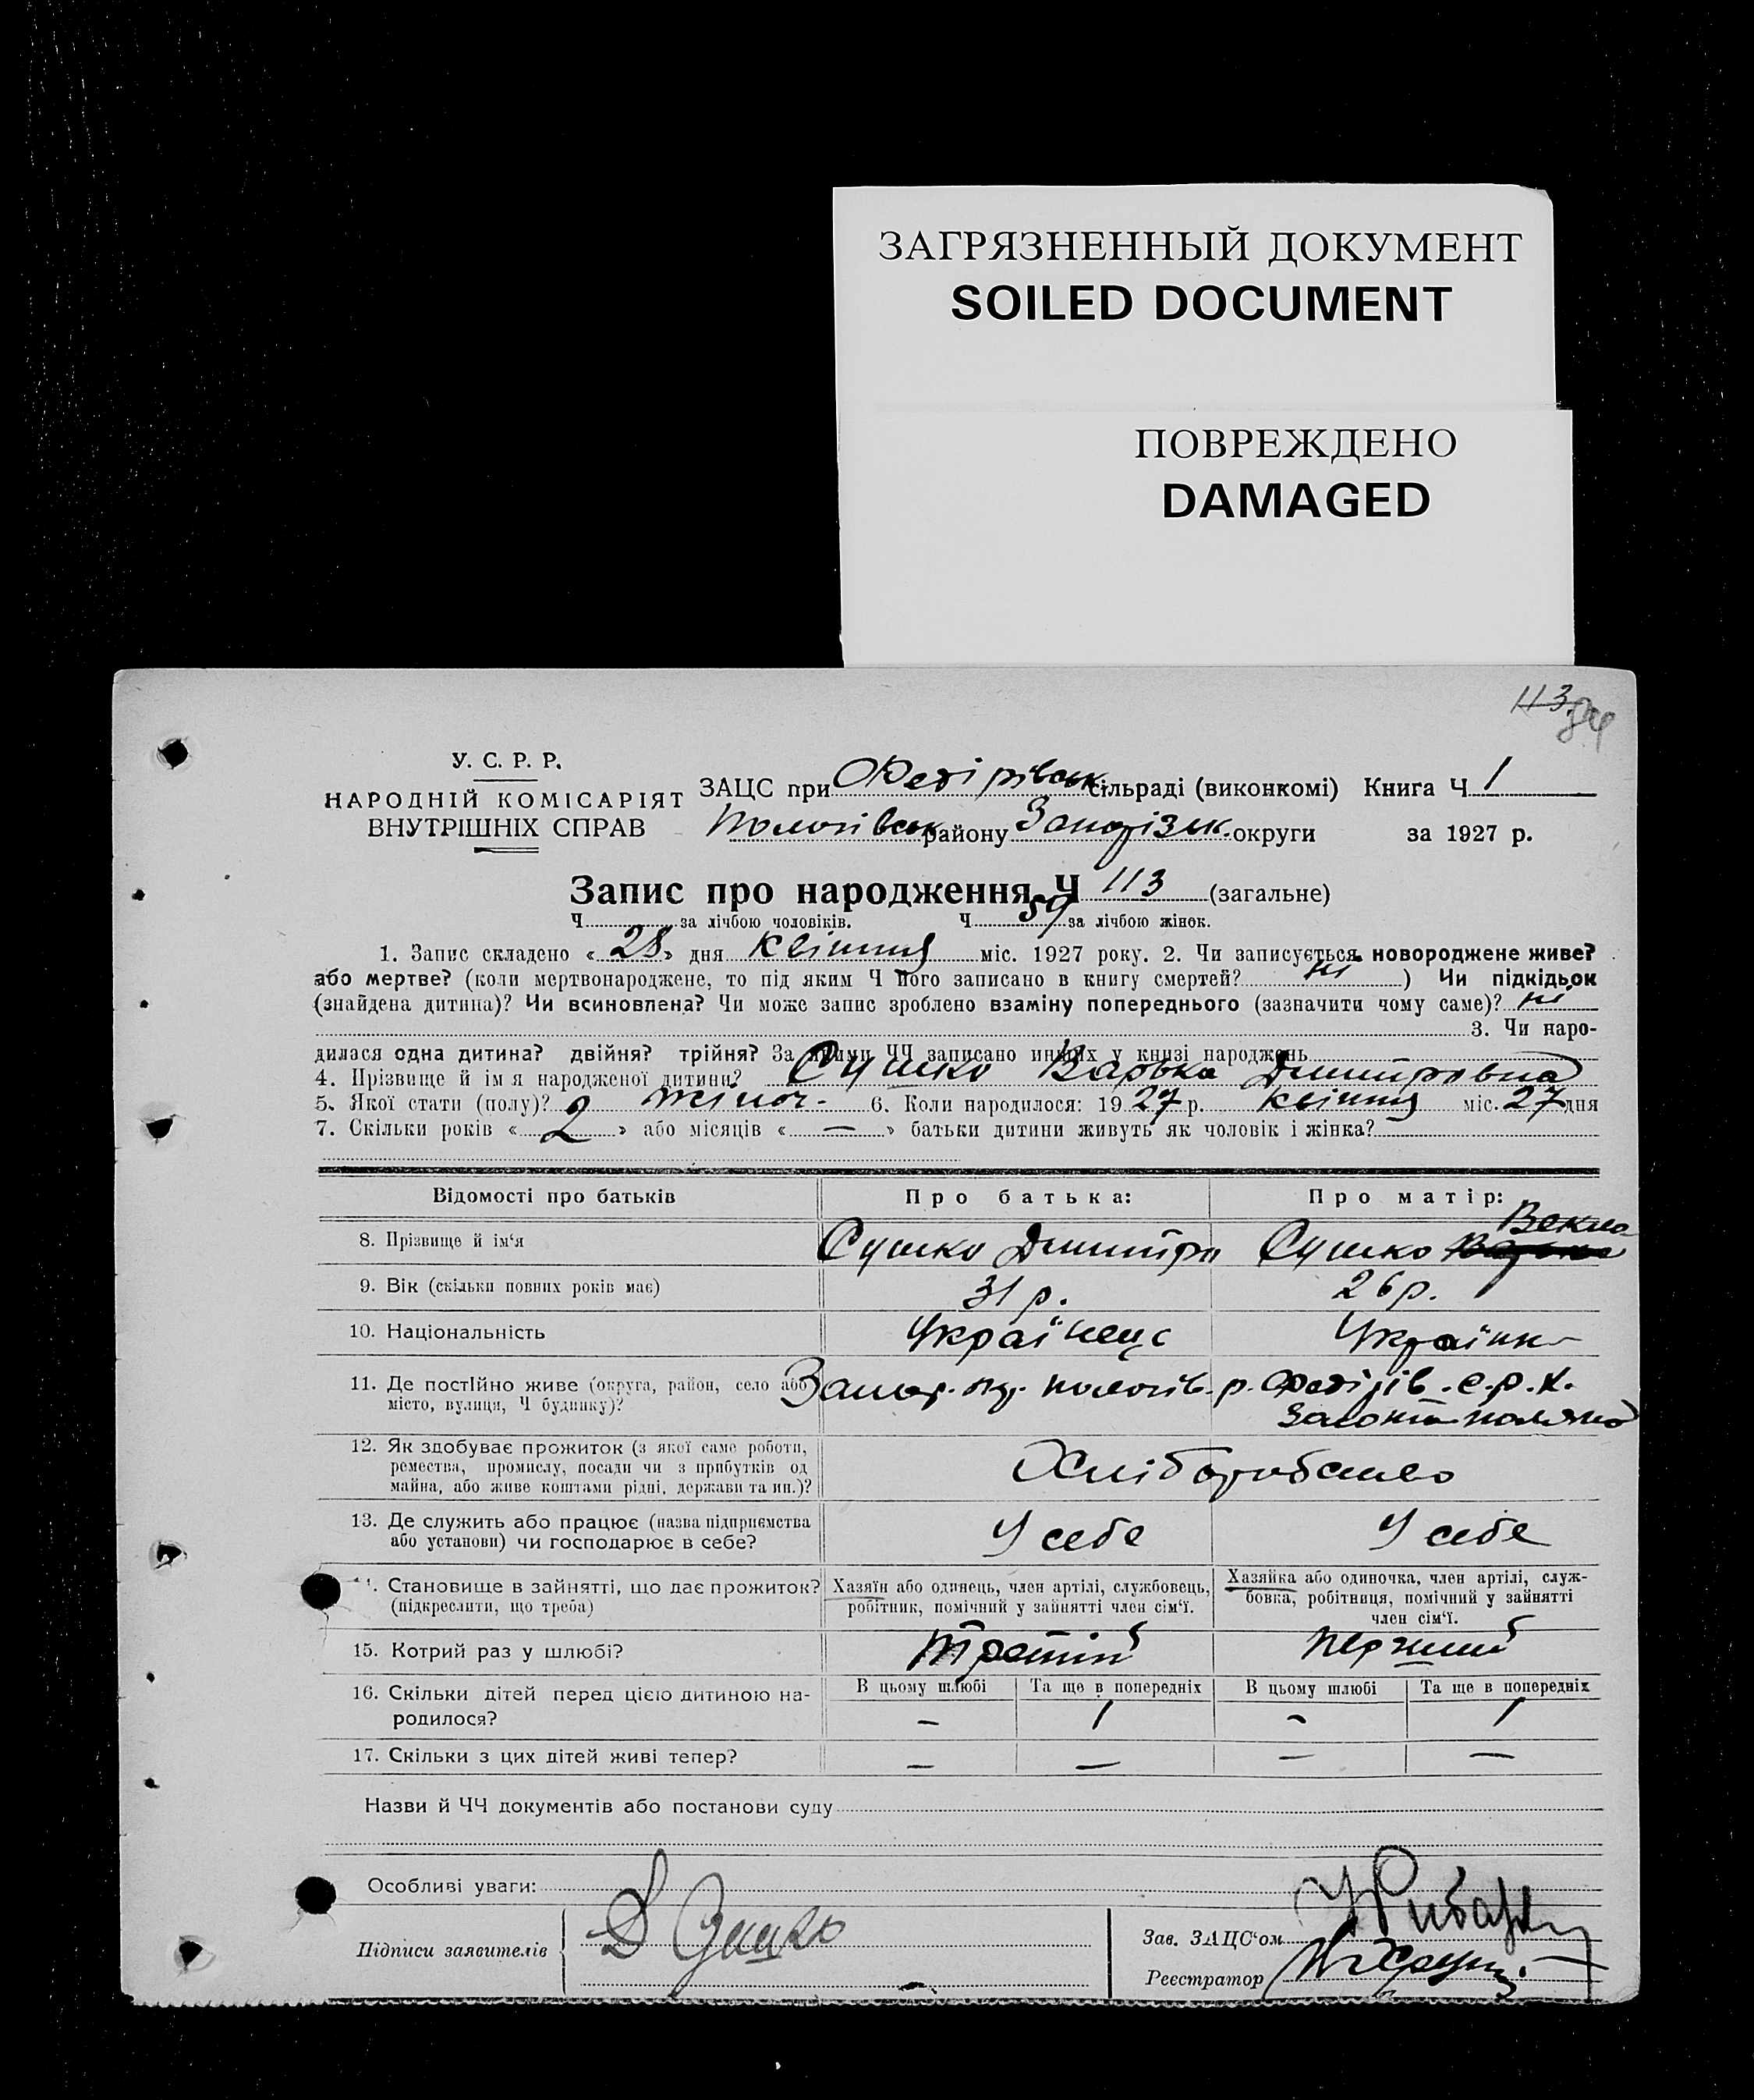 ЗАГРЯЗНЕННЫЙ ДОКУМЕНТ
SOILED DOCUMENT
ПОВРЕЖДЕНО
DAMAGED
113
У. С. Р. Р.
НАРОДНІЙ КОМІСАРІЯТ
ВНУТРІШНІХ СПРАВ
ЗАЦС при Федірівськ. сільраді (виконкомі) Книга Ч 1
Пологівськ району Запорізьк. округи за 1927 р.
Запис про народження Ч 113 (загальне)
Ч за лічбою чоловіків. Ч 59 за лічбою жінок.
1. Запис складено « 28 » дня квітня міс. 1927 року. 2. Чи записується новороджене живе?
або мертве? (коли мертвонароджене, то під яким Ч його записано в книгу смертей? ні ) Чи підкідьок
(знайдена дитина)? Чи всиновлена? Чи може запис зроблено взаміну попереднього (зазначити чому саме)? ні
3. Чи наро-
дилася одна дитина? двійня? трійня? За якими ЧЧ записано инших у книзі народжень
4. Прізвище й ім я народженої дитини? Сушко Варька Дмитровна
5. Якої стати (полу)? жіноч. 6. Коли народилося: 19 27 р. квітня міс. 27 дня
7. Скільки років « 2 » або місяців « — » батьки дитини живуть як чоловік і жінка?
Відомості про батьків
Про батька:
Про матір:
8. Прізвище й ім‘я
Сушко Дмитро
Сушко Векла
9. Вік (скільки повних років має)
31 р.
26 р.
10. Національність
Українец
Українк
11. Де постійно живе (округа, район, село або
місто, вулиця, Ч будинку)?
Запор. окр. Пологів. р. Федірів. с.р. х.
12. Як здобуває прожиток (з якої саме роботи,
ремества, промислу, посади чи з прибутків од
майна, або живе коштами рідні, держави та ин.)?
Хліборобство
13. Де служить або працює (назва підприємства
або установи) чи господарює в себе?
У себе
У себе
Становище в зайнятті, що дає прожиток?
(підкреслити, що треба)
Хазяїн або одинець, член артілі, службовець,
робітник, помічний у зайнятті член сім‘ї.
Хазяйка або одиночка, член артілі, служ-
бовка, робітниця, помічний у зайнятті
член сім‘ї.
15. Котрий раз у шлюбі?
Третій
Перший
16. Скільки дітей перед цією дитиною на-
родилося?
В цьому шлюбі
Та ще в попередніх
В цьому шлюбі
Та ще в попередніх
— 1 — 1
17. Скільки з цих дітей живі тепер?
— — — —
Назви й ЧЧ документів або постанови суду
Особливі уваги:
Підписи заявителів
Д Сушко
Зав. ЗАЦС‘ом
Реєстратор